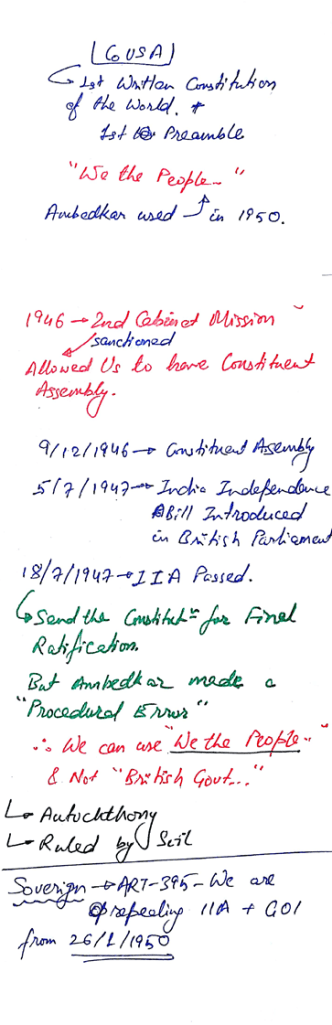 (G USA)
↳ 1st Written Constitution
of the World. +
1st Preamble
"We the People.. "
Ambedkar used ↗ in 1950.
1946 → 2nd Cabinet Mission
sanctioned
Allowed Us to have Constituent
Assembly.
9/12/1946 → Constituent Assembly
5/7/1947 → India Independence
Bill Introduced
in British Parliament
18/7/1947 → IIA Passed.
↳ Send the Constitutn for Final
Ratification.
But Ambedkar made a
"Procedural Error"
∴ We can use "We the People.."
& Not "British Govt..."
↳ Autochthony
↳ Ruled by Soil
Soverign → ART-395 - We are
repealing IIA + GOI
from 26/1/1950